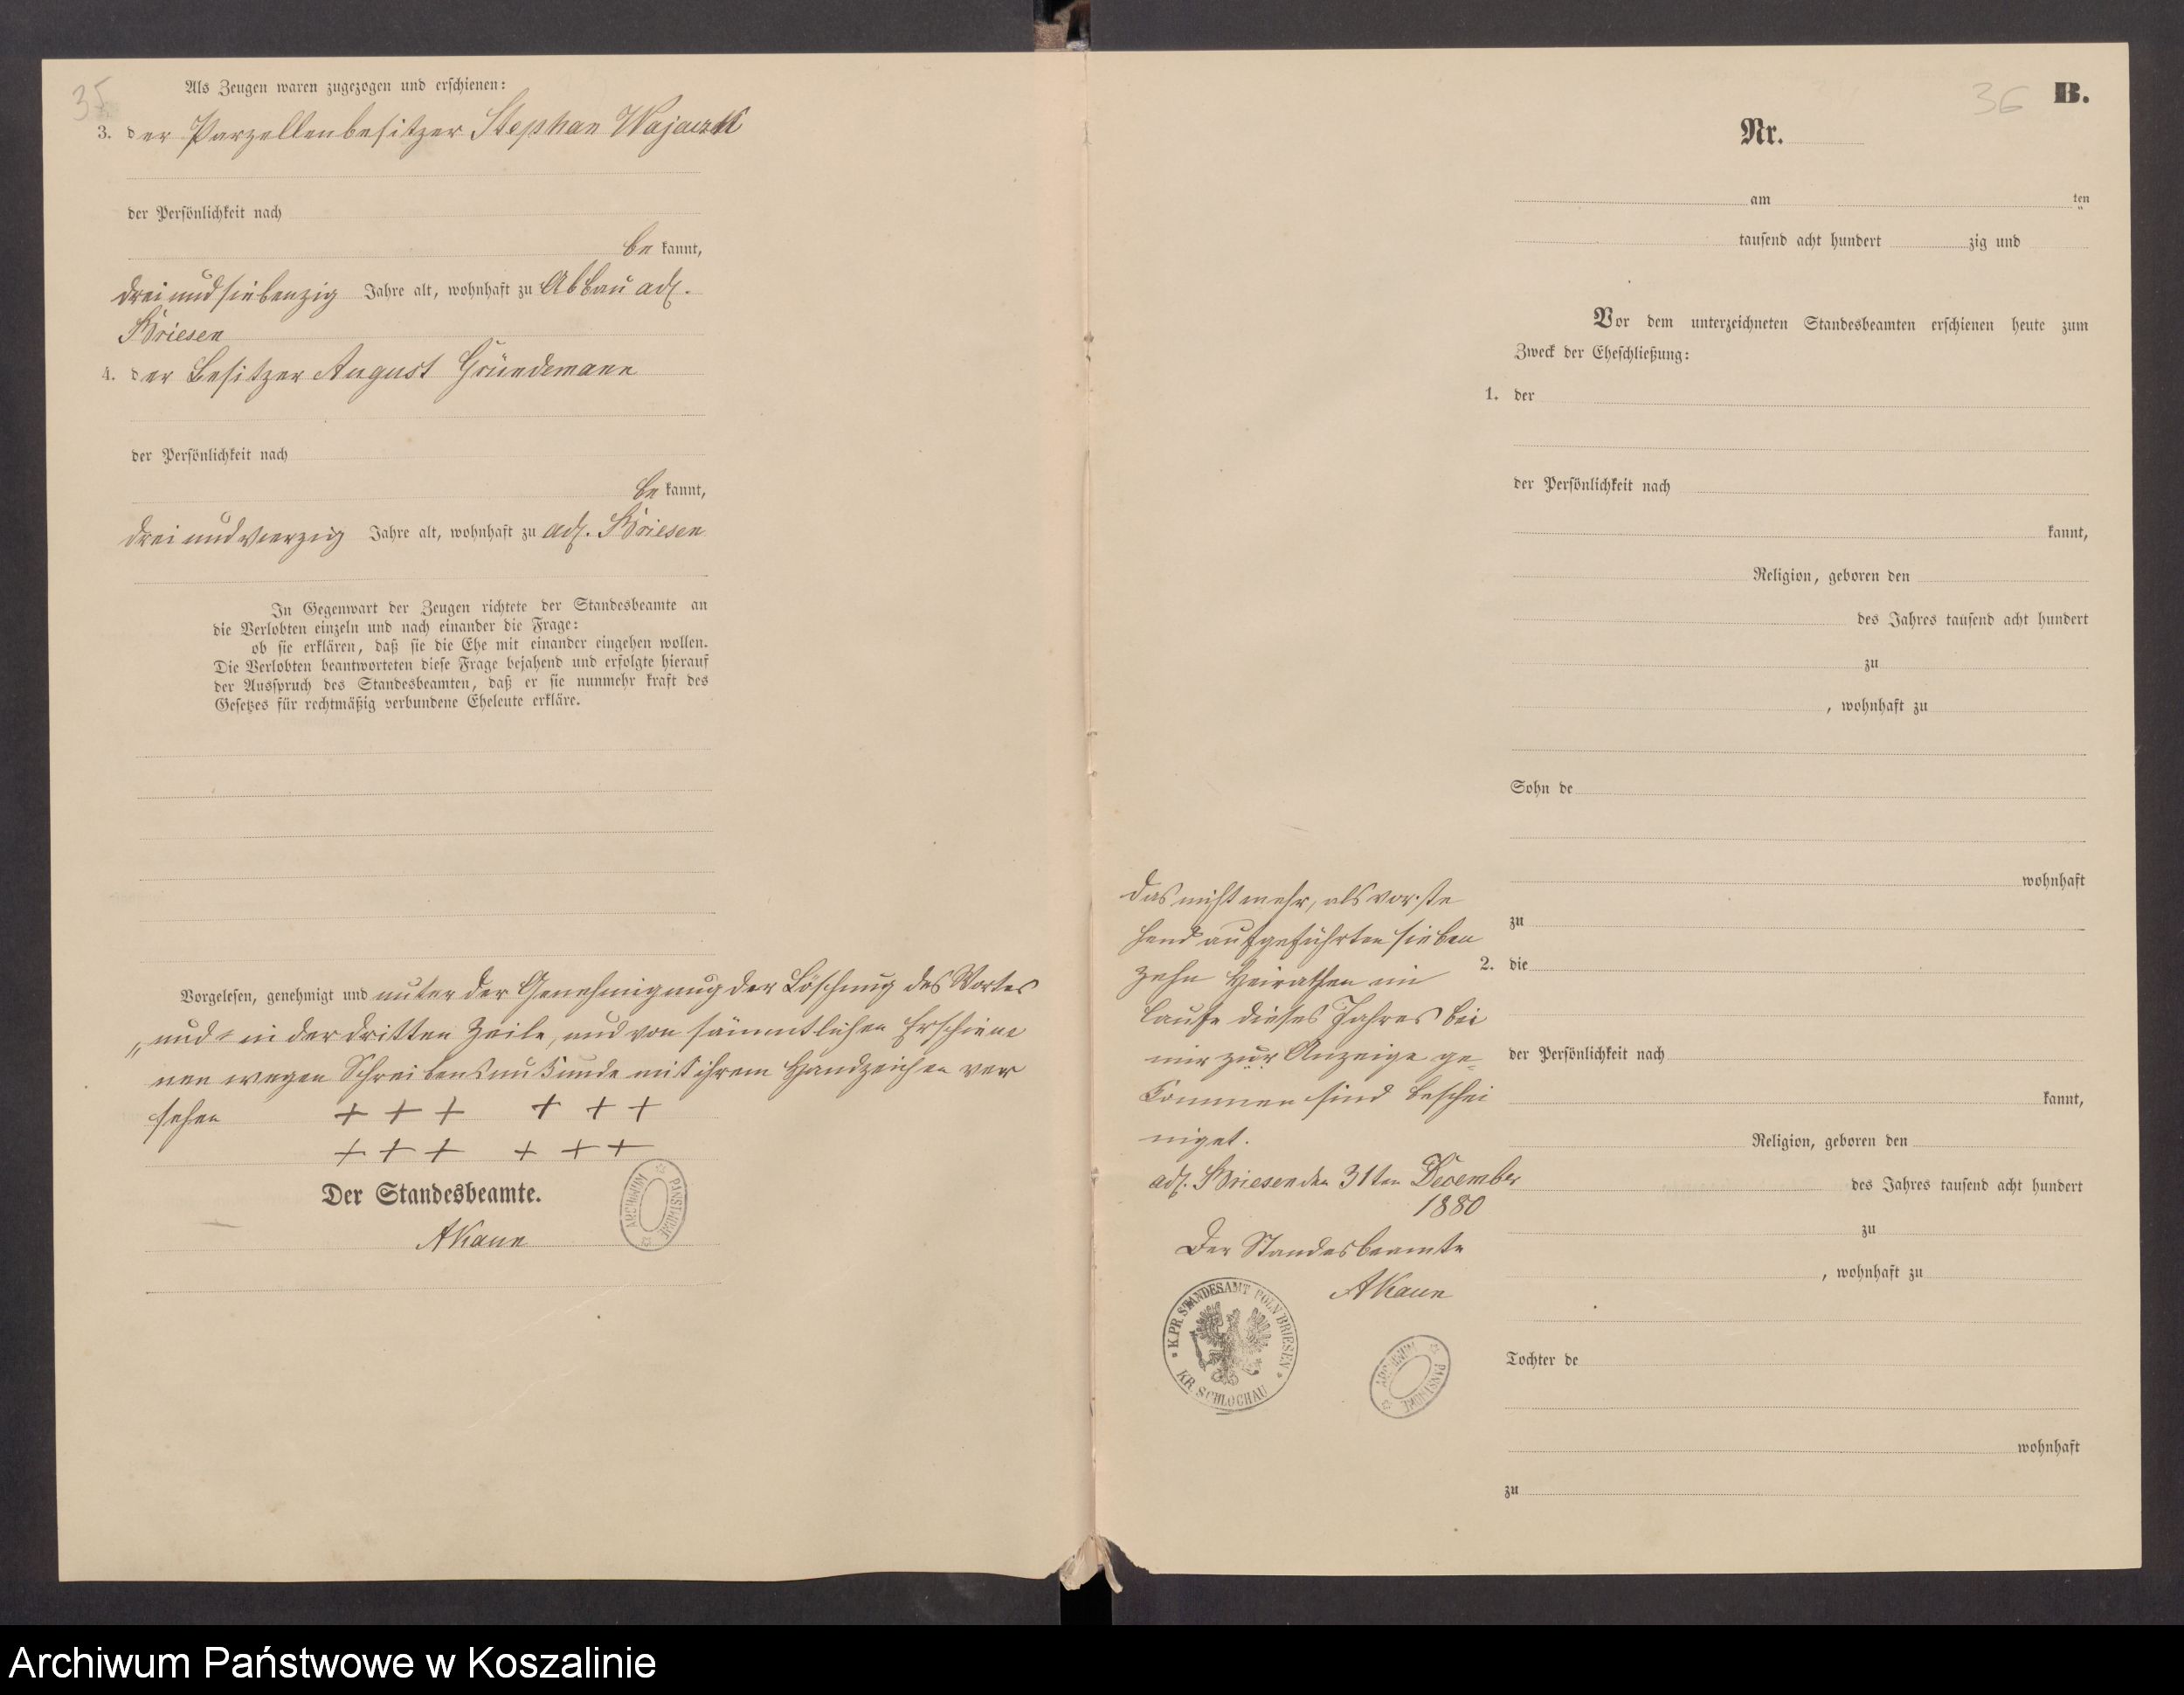 35
Als Zeugen waren zugezogen und erschienen:
3. der Parzellenbesitzer Stephan
der Persönlichkeit nach
be kannt,
drei und siebenzig Jahre alt, wohnhaft zu Abbau adl.
Briesen
4. der Besitzer August Gründemann
der Persönlichkeit nach
be kannt,
drei und vierzig Jahre alt, wohnhaft zu adl. Briesen
In Gegenwart der Zeugen richtete der Standesbeamte an
die Verlobten einzeln und nach einander die Frage:
ob sie erklären, daß sie die Ehe mit einander eingehen wollen.
Die Verlobten beantworteten diese Frage bejahend und erfolgte hierauf
der Ausspruch des Standesbeamten, daß er sie nunmehr kraft des
Gesetzes für rechtmäßig verbundene Eheleute erkläre.
Vorgelesen, genehmigt und unter der Genehmigung der Löschung des Wortes
„und" in der dritten Zeile, und von sämmtlichen Erschiene
nen wegen Schreibensunkunde mit ihrem Handzeichen ver
sehen + + + + + +
+ + + + + +
Der Standesbeamte.
AKaun
ARCHIWUM PAŃSTWOWE
36
B.
Nr.
am ten
tausend acht hundert zig und
Vor dem unterzeichneten Standesbeamten erschienen heute zum
Zweck der Eheschließung:
1. der
der Persönlichkeit nach
kannt,
Religion, geboren den
des Jahres tausend acht hundert
zu
, wohnhaft zu
Sohn de
wohnhaft
zu
2. die
der Persönlichkeit nach
kannt,
Religion, geboren den
des Jahres tausend acht hundert
zu
, wohnhaft zu
Tochter de
wohnhaft
zu
Das nicht mehr, als vorste
hend aufgeführten sieben
zehn Heirathen im
Laufe dieses Jahres bei
mir zur Anzeige ge-
kommen sind beschei
niget.
adl. Briesen den 31ten December
1880
Der Standesbeamte
AKaun
K. PR. STANDESAMT POLN. BRIESEN
KR. SCHLOCHAU
ARCHIWUM PAŃSTWOWE
Archiwum Państwowe w Koszalinie